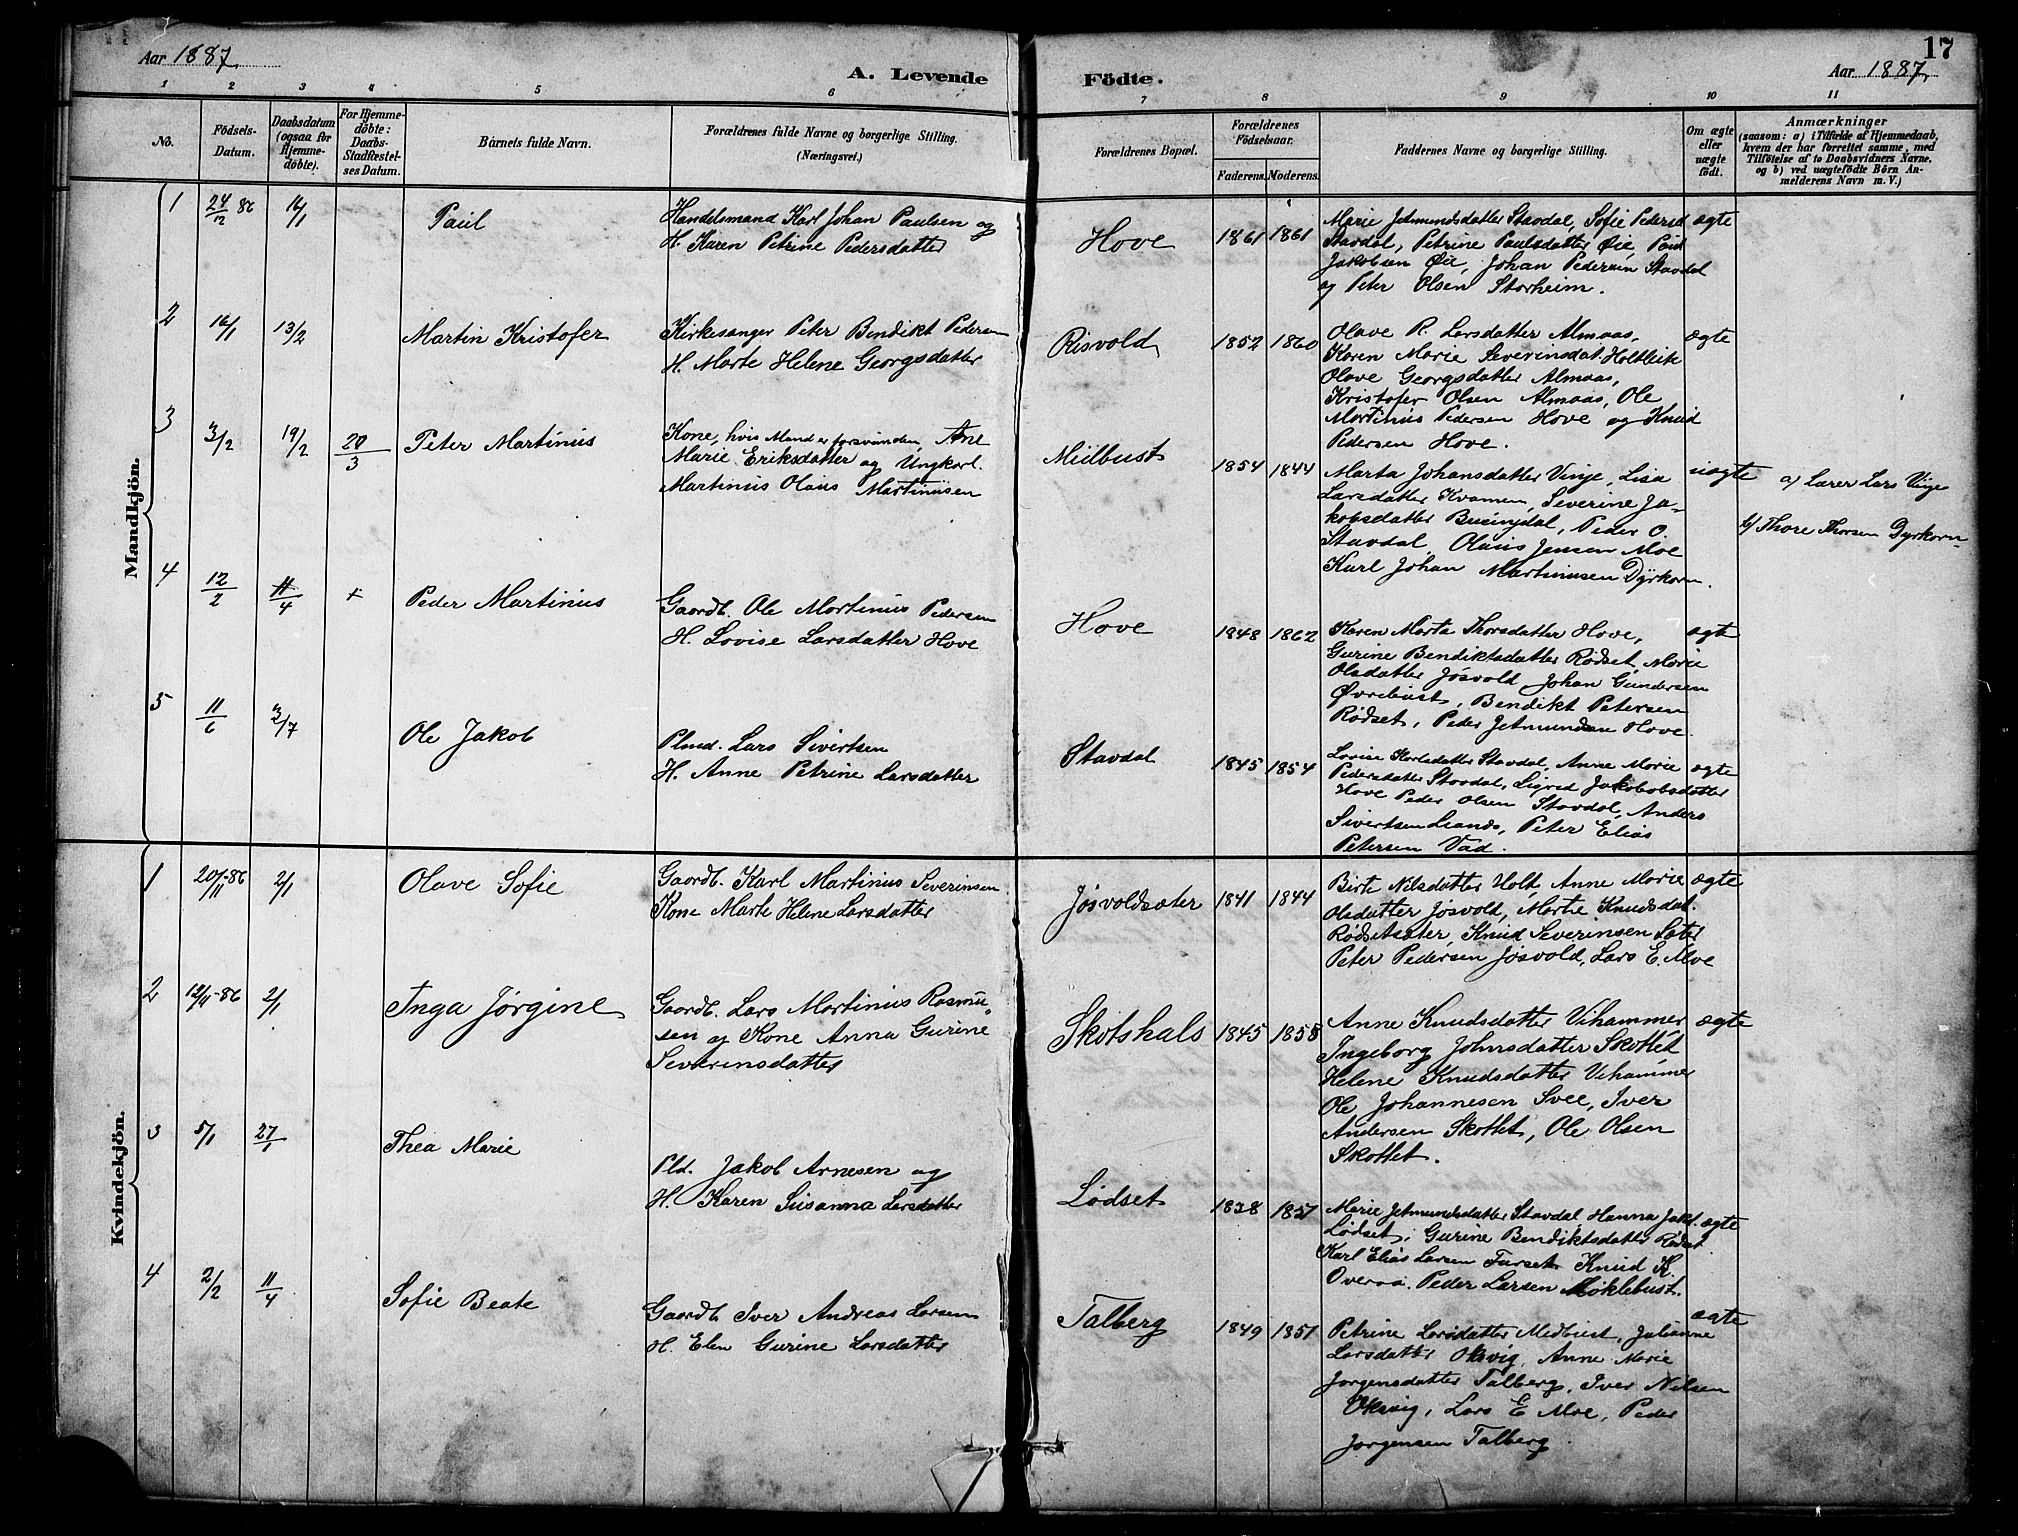 Aar 1887.
A. Levende
Födte.
Aar 1887.
17
1
2
3
4
5
6
7
8
9
10
11
No.
Födsels-
Datum.
Daabsdatum
(ogsaa for
Hjemme-
döbte).
For Hjemme-
döbte:
Daabs-
Stadfæstel-
ses Datum.
Barnets fulde Navn.
Forældrenes fulde Navne og borgerlige Stilling.
(Næringsvei.)
Forældrenes Bopæl.
Forældrenes
Födselsaar.
Faderens.
Moderens.
Faddernes Navne og borgerlige Stilling.
Om ægte
eller
uægte
födt.
Anmærkninger
(saasom: a) i Tilfælde af Hjemmedaab,
hvem der har forrettet samme, med
Tilföielse af to Daabsvidners Navne,
og b) ved uægtefödte Börn An-
melderens Navn m. V.)
Mandkjön.
1
24/12 86
16/1
Paul
Handelsmand Karl Johan Paulsen og
H. Karen Petrine Pedersdatter
Hove
1861
1861
Marie Jetmundsdatter Stavdal, Sofie Pedersd
Stavdal, Petrine Paulsdatter Øie, Paul
Jakobsen Øie, Johan Pedersen Stavdal
og Peter Olsen Storheim.
ægte
2
16/1
13/2
Martin Kristofer
Kirkesanger Peter Bendikt Pedersen
H. Marte Helene Georgsdatter
Risvold
1852
1860
Olave R. Larsdatter Almaas,
Karen Marie Severinsdat. Holtleite
Olave Georgsdatter Almaas,
Kristofer Olsen Almaas, Ole
Martinus Pedersen Hove og Knud
Pedersen Hove.
ægte
3
3/2
19/2
20/3
Peter Martinus
Kone, hvis Mand er forsvunden, Ane
Marie Eriksdatter og Ungkarl.
Martinus Olaus Martinusen
Midbust
1854
1844
Marta Johansdatter Vinje, Lisa
Larsdatter Kvamen, Severine Ja-
kobsdatter Bueingdal, Peder O.
Stavdal, Olaus Jensen Moe
Karl Johan Martinusen Dyrkorn.
uægte
a) Lærer Lars Vinje
b) Thore Thorsen Dyrkorn
4
12/2
11/4
+
Peder Martinius
Gaardb. Ole Martinus Pedersen
H. Lovise Larsdatter Hove
Hove
1848
1862
Karen Marta Thorsdatter Hove,
Gurine Bendiktsdatter Rødset, Marie
Olsdatter Jøsvold Johan Gundersen
Øvrebust, Bendikt Petersen
Rødset, Peder Jetmundsen Hove.
ægte
5
11/6
3/7
Ole Jakob
Plmd. Lars Sivertsen
H. Anne Petrine Larsdatter
Stavdal
1845
1854
Lovise Karlsdatter Stavdal, Anne Marie
Pedersdatter Stavdal, Sigrid Jakobobsdatter
Hove Peder Olsen Stavdal, Anders
Sivertsen Liands, Peter Elias
Petersen Vad.
ægte
Kvindekjön.
1
20/11-86
2/1
Olave Sofie
Gaardb. Karl Martinius Severinsen
Kone Marte Helene Larsdatter
Jøsvoldsæter
1841
1844
Birte Nilsdatter Holt, Anne Marie
Olsdatter Jøsvold, Martie Knudsdat.
Rødsetsæter, Knud Severinsen Sæter
Peter Pedersen Jøsvold, Lars E. Moe
ægte
2
12/11-86
2/1
Inga Jørgine
Gaardb. Lars Martinius Rasmu-
sen og Kone Anna Gurine
Severinsdatter
Skotshals
1845
1858
Anne Knudsdatter Vihammer
Ingeborg Johnsdatter Skottet
Helene Knudsdatter Vihammer
Ole Johannesen Svee, Iver
Andersen Skottet, Ole Olsen
Skottet.
ægte
3
5/1
27/1
Thea Marie
Pld. Jakob Arnesen og
H. Karen Susanna Larsdatter
Lødset
1828
1851
Marie Jetmundsdatter Stavdal Hanna Jakt.
Lødset, Gurine Bendiktsdatter Rødset
Karl Elias Larsen Furset, Knud K.
Overaa. Peder Larsen Møklebust.
ægte
4
2/2
11/4
Sofie Beate
Gaardb Iver Andreas Larsen
H. Elen Gurine Larsdatter
Talberg
1849
1851
Petrine Larsdatter Midbust, Julianne
Larsdatter Oksvig, Anne Marie
Jorgensdatter Talberg, Iver Nilsen
Oksvig, Lars E Moe, Peder
Jorgensen Talberg
ægte